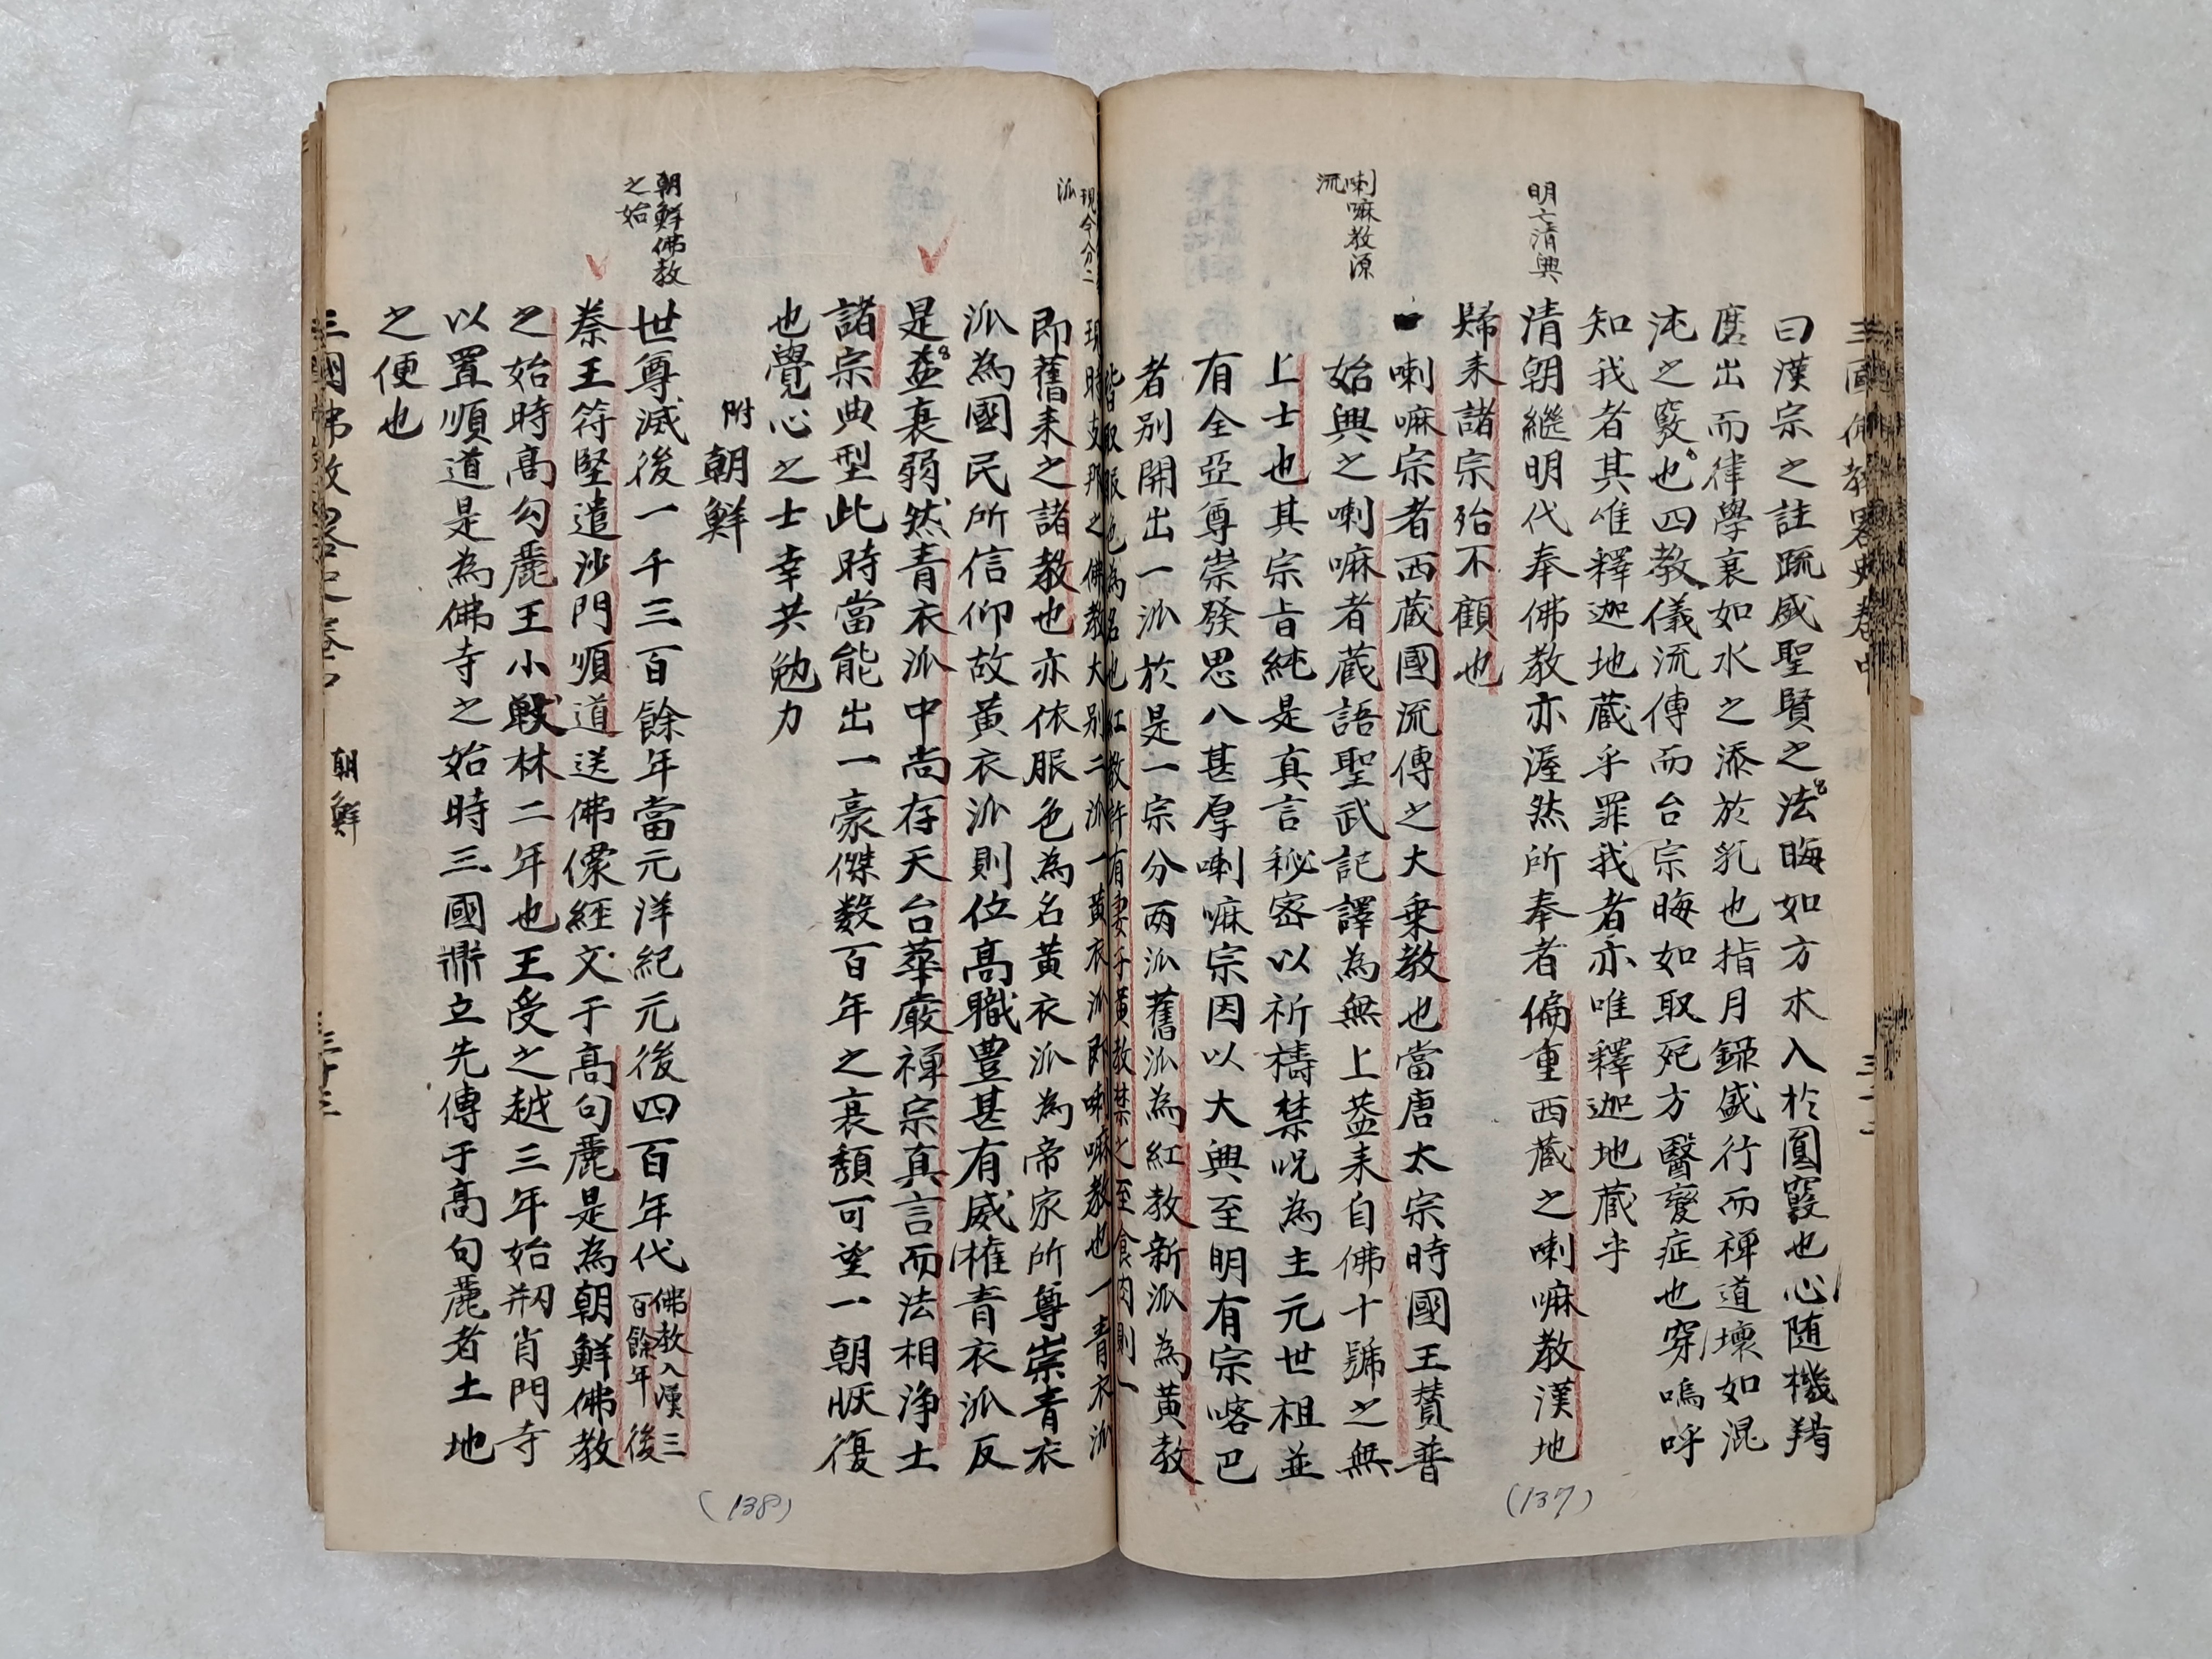 三國佛教畧史卷中
曰漢宗之註疏盛聖賢之法晦如方水入於圓竅也心随機
麿出而律學衰如水之添於乳也指月錄盛行而禪道壞如混
沌之竅也四教儀流傳而台宗晦如取死方醫變症也穿嗚呼
知我者其唯釋迦地蔵乎罪我者亦唯釋迦地蔵乎
明亡清興
清朝継明代奉佛教亦渥然所奉者偏重西蔵之喇嘛教漢地
歸来諸宗殆不顧也
喇嘛教源
流
一喇嘛宗者西蔵國流傳之大乗教也當唐太宗時國王賛普
始興之喇嘛者蔵語聖武記譯為無上葢来自佛十號之無
上士也其宗旨純是真言秘密以祈禱禁呪為主元世祖並
有全亞尊崇發思八甚厚喇嘛宗因以大興至明有宗喀巴
者別開出一派於是一宗分两派舊派為紅教新派為黄教
皆取服色為名也紅教許有妻子黄教禁之至食肉則一
現今分二
派
現時支那之佛教大别二派一黄衣派即喇嘛教也一青衣派
即舊来之諸教也亦依服色為名黄衣派為帝家所尊崇青衣
派為國民所信仰故黄衣派則位高職豊甚有威権青衣派反
是益衰弱然青衣派中尚存天台華厳禪宗真言而法相浄土
諸宗典型此時當能出一豪傑数百年之衰頽可望一朝恢復
也覺心之士幸共勉力
附朝鮮
朝鮮佛教
之始
世尊滅後一千三百餘年當元洋紀元後四百年代佛教入漢三
百餘年後
秦王符堅遣沙門順道送佛像経文于高句麗是為朝鮮佛教
之始時高勾麗王小獸林二年也王受之越三年始剏肖門寺
以置順道是為佛寺之始時三國鼎立先傳于高句麗者土地
之便也
三國佛教畧史卷中 朝鮮 三十三
(137)
(138)